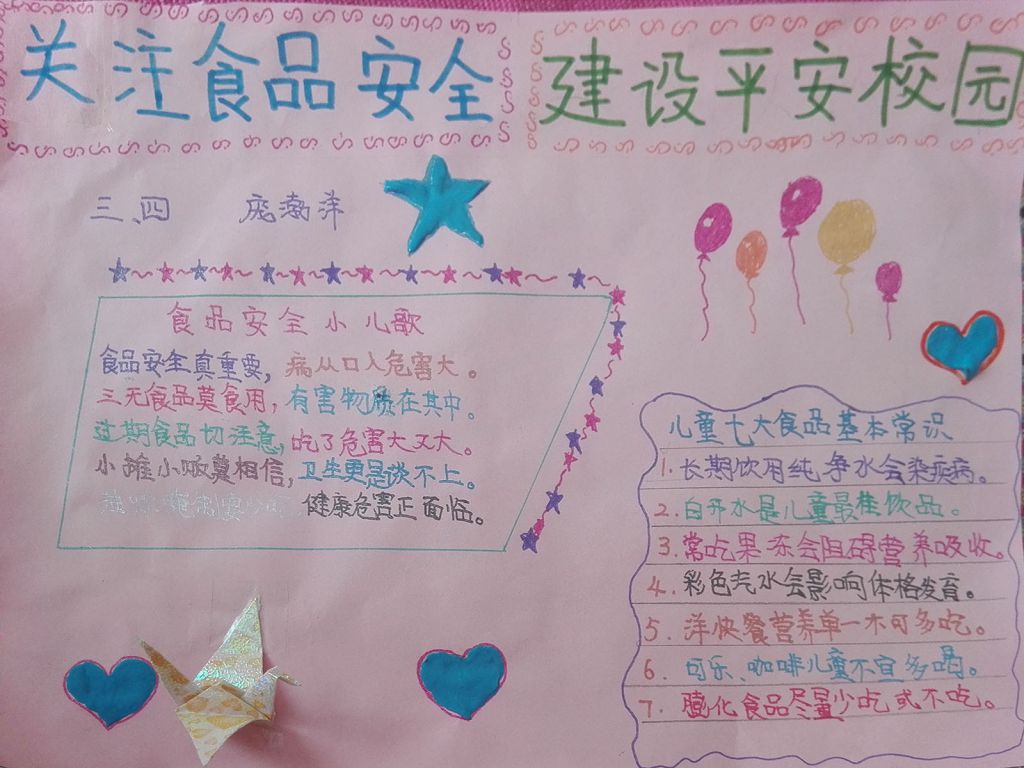 关注食品安全 建设平安校园
三、四 庞渤洋
食品安全小儿歌
食品安全真重要，病从口入危害大。
三无食品莫食用，有害物质在其中。
过期食品切注意，吃了危害大又大。
小摊小贩莫相信，卫生更是谈不上。
健康危害正面临。
儿童七大食品基本常识
1.长期饮用纯净水会染疾病。
2.白开水是儿童最佳饮品。
3.常吃果冻会阻碍营养吸收。
4.彩色汽水会影响体格发育。
5.洋快餐营养单一不可多吃。
6.可乐、咖啡儿童不宜多喝。
7.膨化食品尽量少吃或不吃。